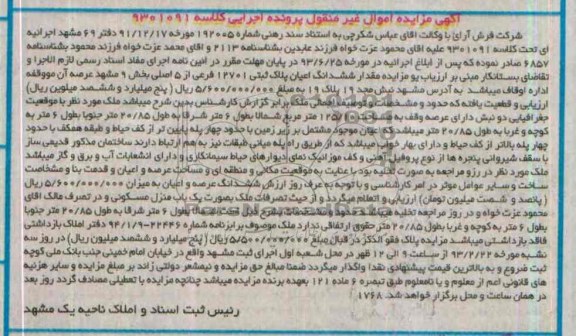 آگهی مزایده اموال غیر منقول پرونده اجرایی کلاسه ۹۳۰۱۰۹۱
شرکت فرش آرای با وکالت آقای عباس شکرچی به استناد سند رهنی شماره ۱۹۲۰۰۵ مورخه ۹۱/۱۲/۱۷ دفتر ۶۹ مشهد اجرائیه
ای تحت کلاسه ۹۳۰۱۰۹۱ علیه آقای محمود عزت خواه فرزند عابدین بشناسنامه ۲۱۱۳ و آقای محمد عزت خواه فرزند محمود بشناسنامه
۶۸۵۷ صادر نموده که پس از ابلاغ اجرائیه در مورخه ۹۳/۶/۲۵ در پایان مهلت مقرر در آئین نامه اجرای مفاد اسناد رسمی لازم الاجرا و
تقاضای بستانکار مبنی بر ارزیاب یو مزایده مقدار ششدانگ اعیان پلاک ثبتی ۱۲۷۰۱ فرعی از ۵ اصلی بخش ۹ مشهد عرصه آن موقوفه
اداره اوقاف میباشد به آدرس مشهد نبش مجد ۱۹ پلاک ۱۹ به مبلغ ۵/۶۰۰/۰۰۰/۰۰۰ ریال ( پنج میلیارد و ششصد میلیون ریال)
ارزیابی و قطعیت یافته که حدود و مشخصات و توصیف اجمالی ملک برابر گزارش کارشناس بدین شرح میباشد ملک مورد نظر با موقعیت
جغرافیایی دو نبش دارای عرصه وقف به مساحت ۱۲۵/۱۰ متر مربع شمالا بطول ۶ متر شرقا به طول ۲۰/۸۵ متر جنوبا بطول ۶ متر به
کوچه و غربا به طول ۲۰/۸۵ متر میباشد و اعیان موجود مشتمل بر زیر زمین با حدود چهار پله پایین تر از کف حیاط و طبقه همکف با حدود
چهار پله بالاتر از کف حیاط و دارای بهار خواب میباشد که از طریق راه پله میانی طبقات نیز به هم ارتباط دارند ساختمان مذکور قدیمی ساز
با سقف شیروانی پنجره ها از نوع پروفیل آهنی و کف موزائیک نمای دیوارهای حیاط سیمانکاری و دارای انشعابات آب و برق و گاز میباشد
ملک مورد نظر در رزو مراجعه به صورت تخلیه بود با عنایت به موقعیت مکانی و منطقه ای و مساحت عرصه و اعیان و قدمت بنا و مشخصات
ساخت و سایر عوامل موثر در امر کارشناسی و با توجه به عرف روز ارزش ششدانگ عرصه و اعیان به میزان ۵/۶۰۰/۰۰۰/۰۰۰ ریال
( پانصد و شصت میلیون تومان) ارزیابی و اعلام میگردد و از حیث تصرفات ملک بصورت یک باب منزل مسکونی و در تصرف مالک آقای
محمود عزت خواه و در روز مراجعه تخلیه میباشد طول ۶ متر شرقا به طول ۲۰/۸۵ متر جنوبا
بطول ۶ متر به کوچه و غربا بطول ۲۰/۸۵ متر حقوق ارتفاقی ندارد ملک موصوف برابرنامه شماره ۲۲۴۴۶-۹۴/۱/۹ دفتر املاک بازداشتی
فاقد بازداشتی میباشد مزایده پلاک فوق الذکر در قبال مبلغ ۵/۶۰۰/۰۰۰/۰۰۰ ریال ( پنج میلیارد و ششصد میلیون ریال) در روز سه
شنبه مورخه ۹۴/۲/۲۲ از ساعت ۹ الی ۱۲ ظهر در محل شعبه اول اجرای ثبت مشهد واقع در خیابان امام خمینی جنب بانک ملی کوچه
ثبت شروع و به بالاترین قیمت پیشنهادی نقدا واگذار میگردد ضمنا مبالغ حق مزایده و نیمعشر دولتی زائد بر مبلغ مزایده و سایر هزینه
های قانونی اعم از معلوم و یا نامعلوم طبق تبصره ۶ ماده ۱۲۱ بعهده برنده مزایده میباشد چنانچه مزایده با تعطیلی مصادف گردد روز بعد
در همان ساعت و محل برگزار خواهد شد. ۱۷۶۸
رئیس ثبت اسناد و املاک ناحیه یک مشهد